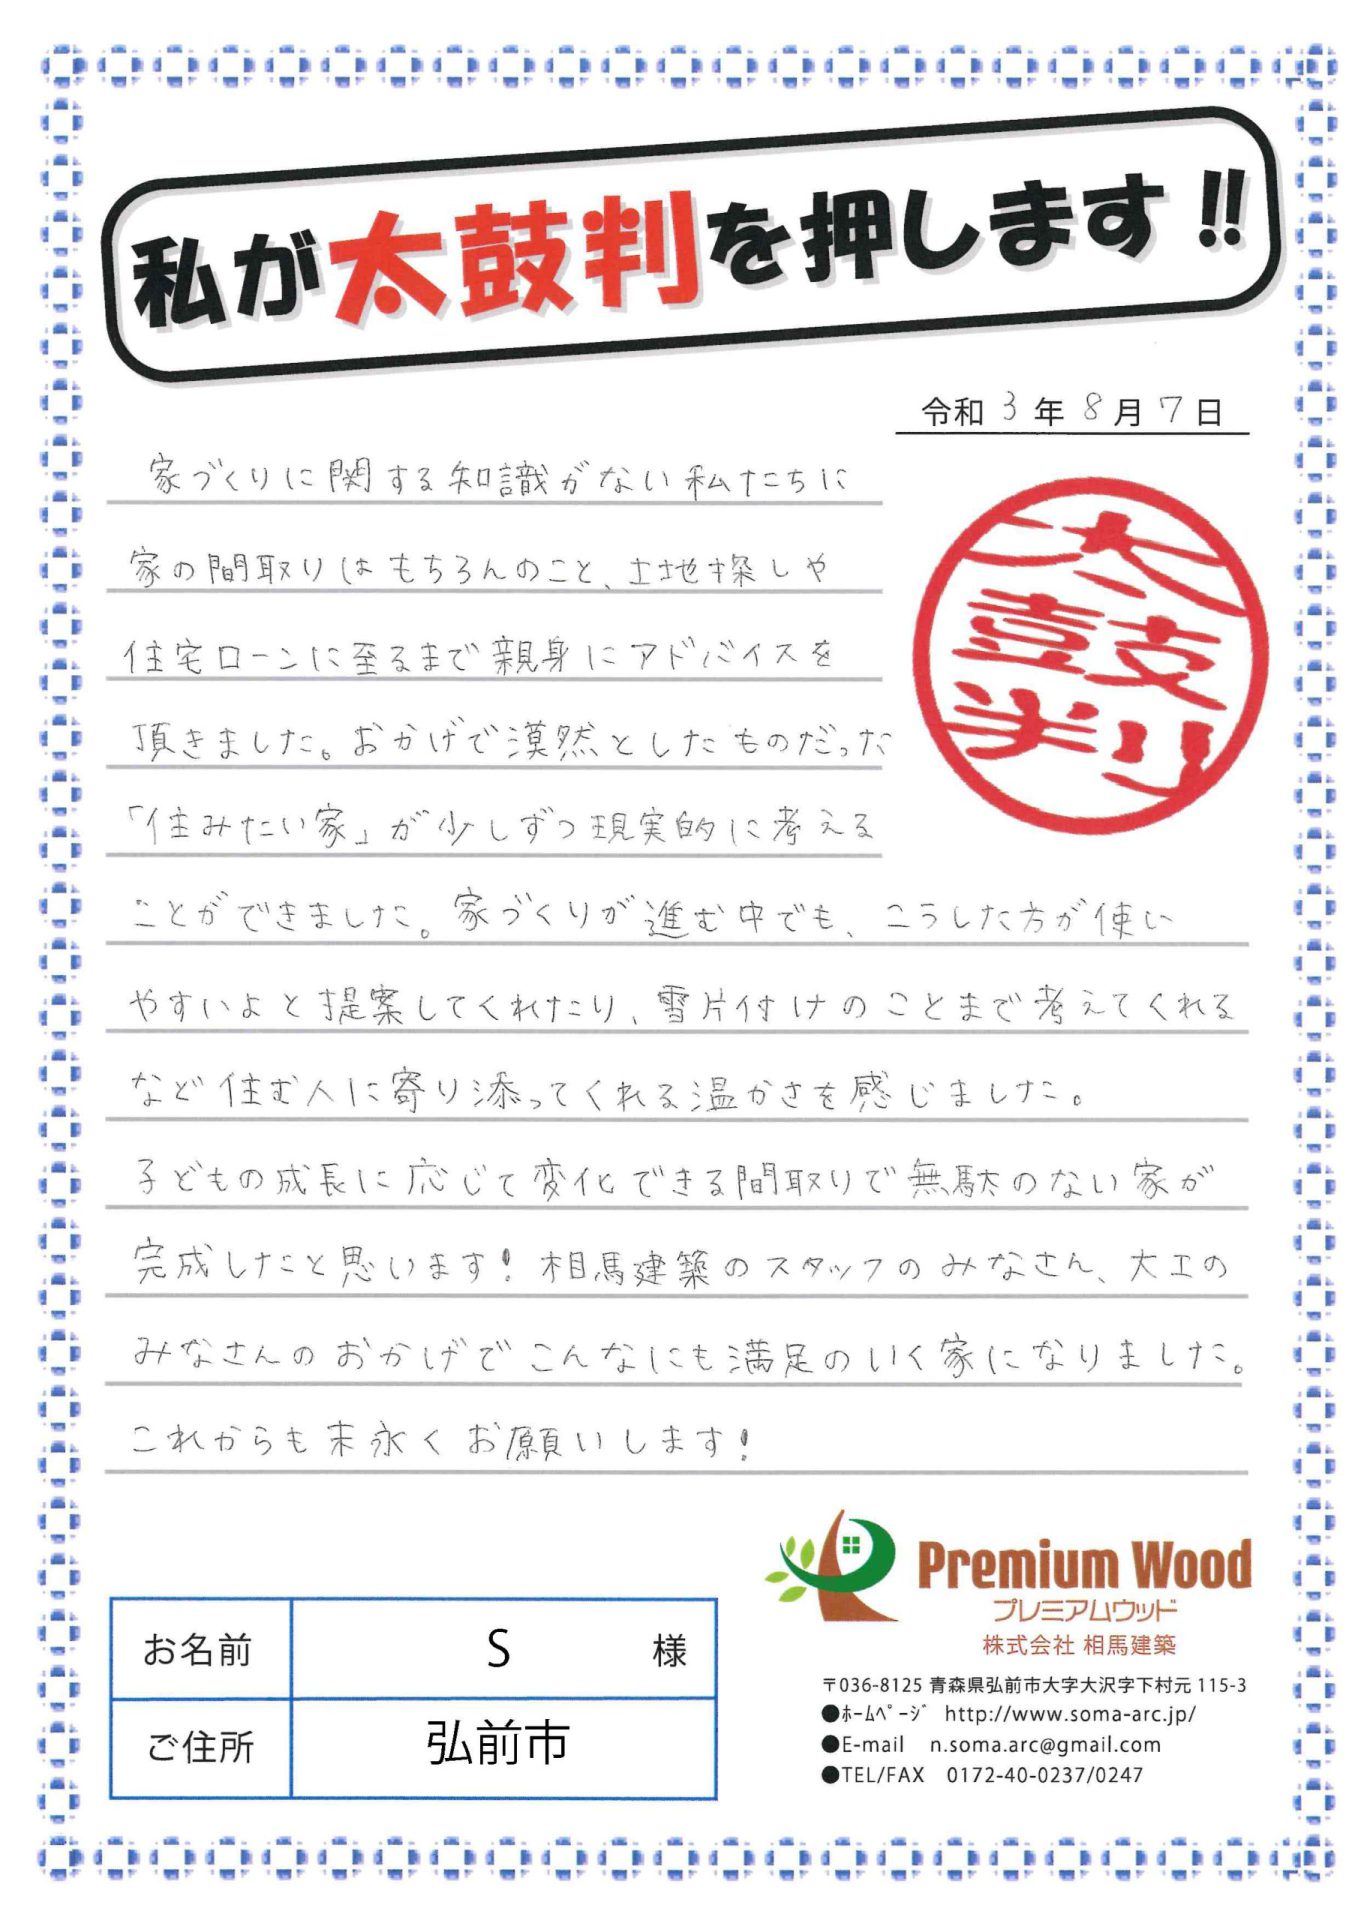 私が太鼓判を押します!!
令和3年8月7日
家づくりに関する知識がない私たちに
家の間取りはもちろんのこと、土地探しや
住宅ローンに至るまで親身にアドバイスを
頂きました。おかげで漠然としたものだった
「住みたい家」が少しずつ現実的に考える
ことができました。家づくりが進む中でも、こうした方が使い
やすいよと提案してくれたり、雪片付けのことまで考えてくれる
など住む人に寄り添ってくれる温かさを感じました。
子どもの成長に応じて変化できる間取りで無駄のない家が
完成したと思います!相馬建築のスタッフのみなさん、大工の
みなさんのおかげでこんなにも満足のいく家になりました。
これからも末永くお願いします!
太鼓判
Premium Wood
プレミアムウッド
株式会社 相馬建築
お名前 S 様
ご住所 弘前市
〒036-8125 青森県弘前市大字大沢字下村元 115-3
●ﾎｰﾑﾍﾟｰｼﾞ http://www.soma-arc.jp/
●E-mail n.soma.arc@gmail.com
●TEL/FAX 0172-40-0237/0247